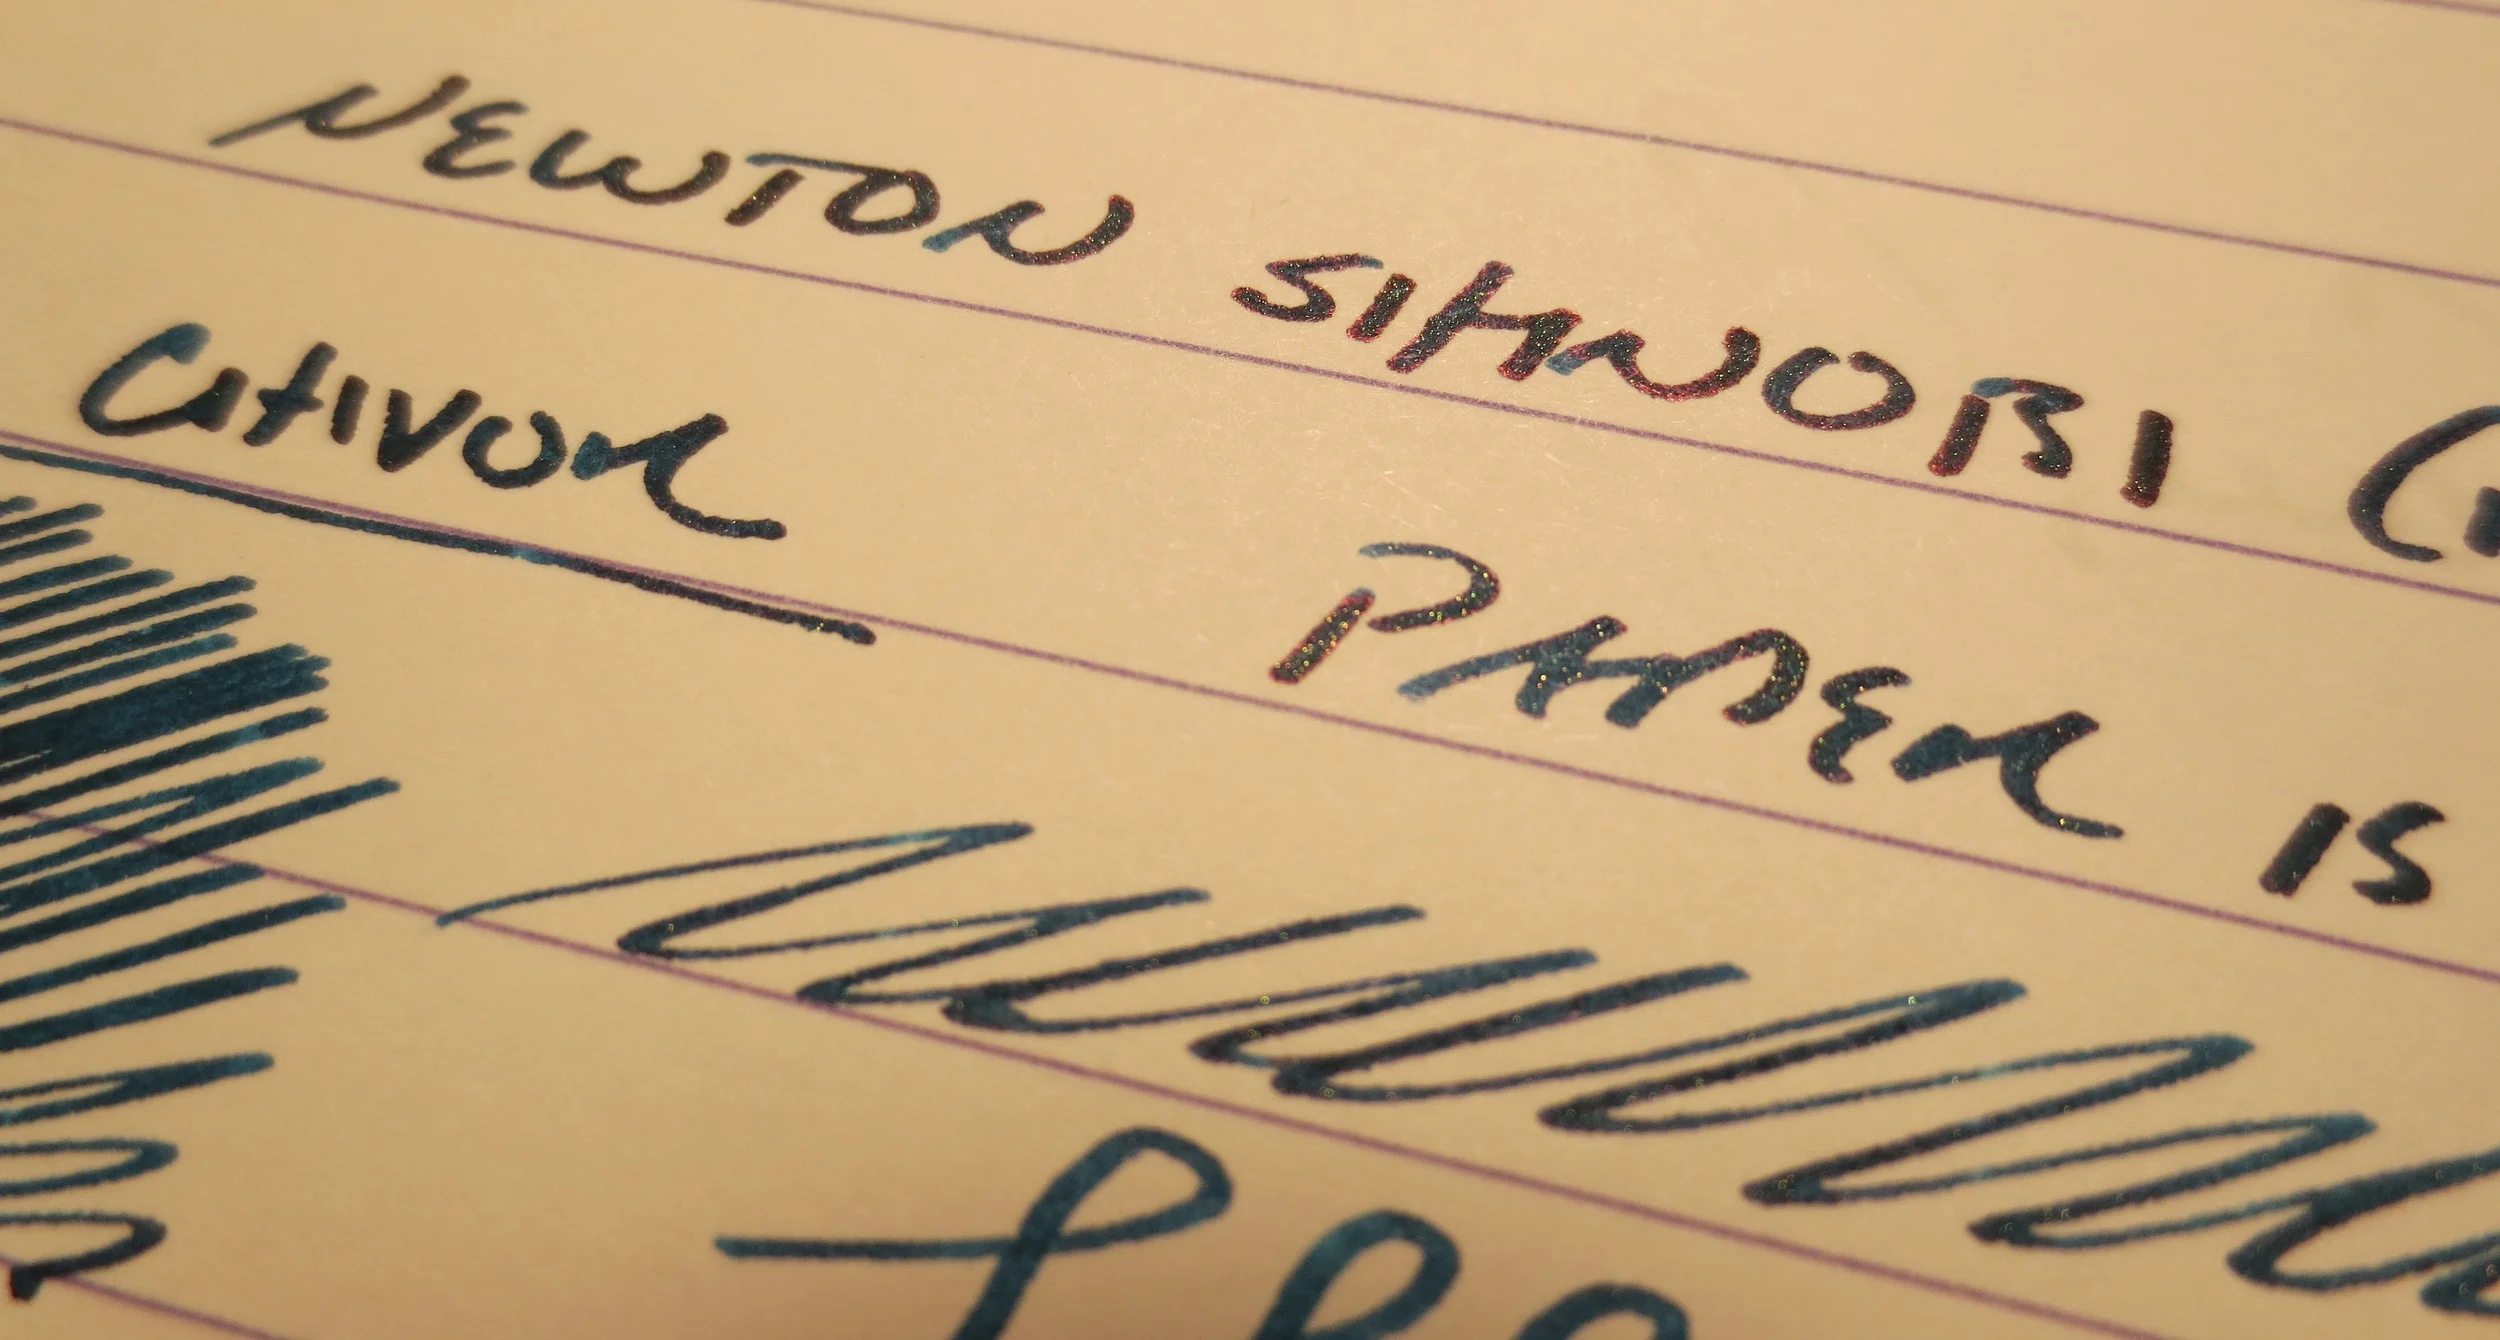 NEWTON SHINOBI (
CHIVOR PAPER IS